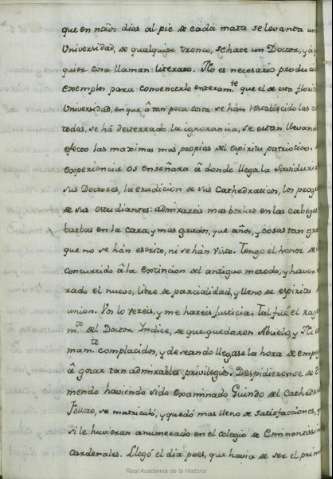 que en nros dias al pie de cada mata se levanta un
Universidad, de qualquier tronco, se hace un Doctor, y a
quiera llaman literato. No es necesario produci
exemplo para convencerlo enteramte que el de esta florid
Universidad, en que á tan poca costa se hán establecido las
todas, se há desterrado la ignorancia, se estan llevan
efecto las maximas mas propias del espiritu patriotico.
experiencia os enseñara á donde llega la sabiduria
sus Doctores, la erudicion de sus Cathedraticos, los prog
de sus estudiantes: admirareis mas borlas en las cabezas
barbas en la cara, y mas grados, que años, y cosas tan gra
que no se hán escrito, ni se hán visto. Tengo el honor de
concurrido á la extincion del antiguo metodo, y haver
rado el nuevo, libre de parcialidad, y lleno de espiritu
union. Vos lo vereis, y me hareis justicia. Tal fue el raz
mto del Doctor Indice, de que quedaron Abuelo, y
mamte complacidos, y deseando llegase la hora de emp
á gozar tan admirables privilegios. Despidieronse de
mendo haviendo sido examinado Guindo del Cathedra
Tellozo, se matriculó, y quedó mas lleno de satisfacciones, q
si le huvieran enumerado en el colegio de Eminentisi
Cardenales. Llegó el dia post, que havia de ser el prim
Real Academia de la Historia